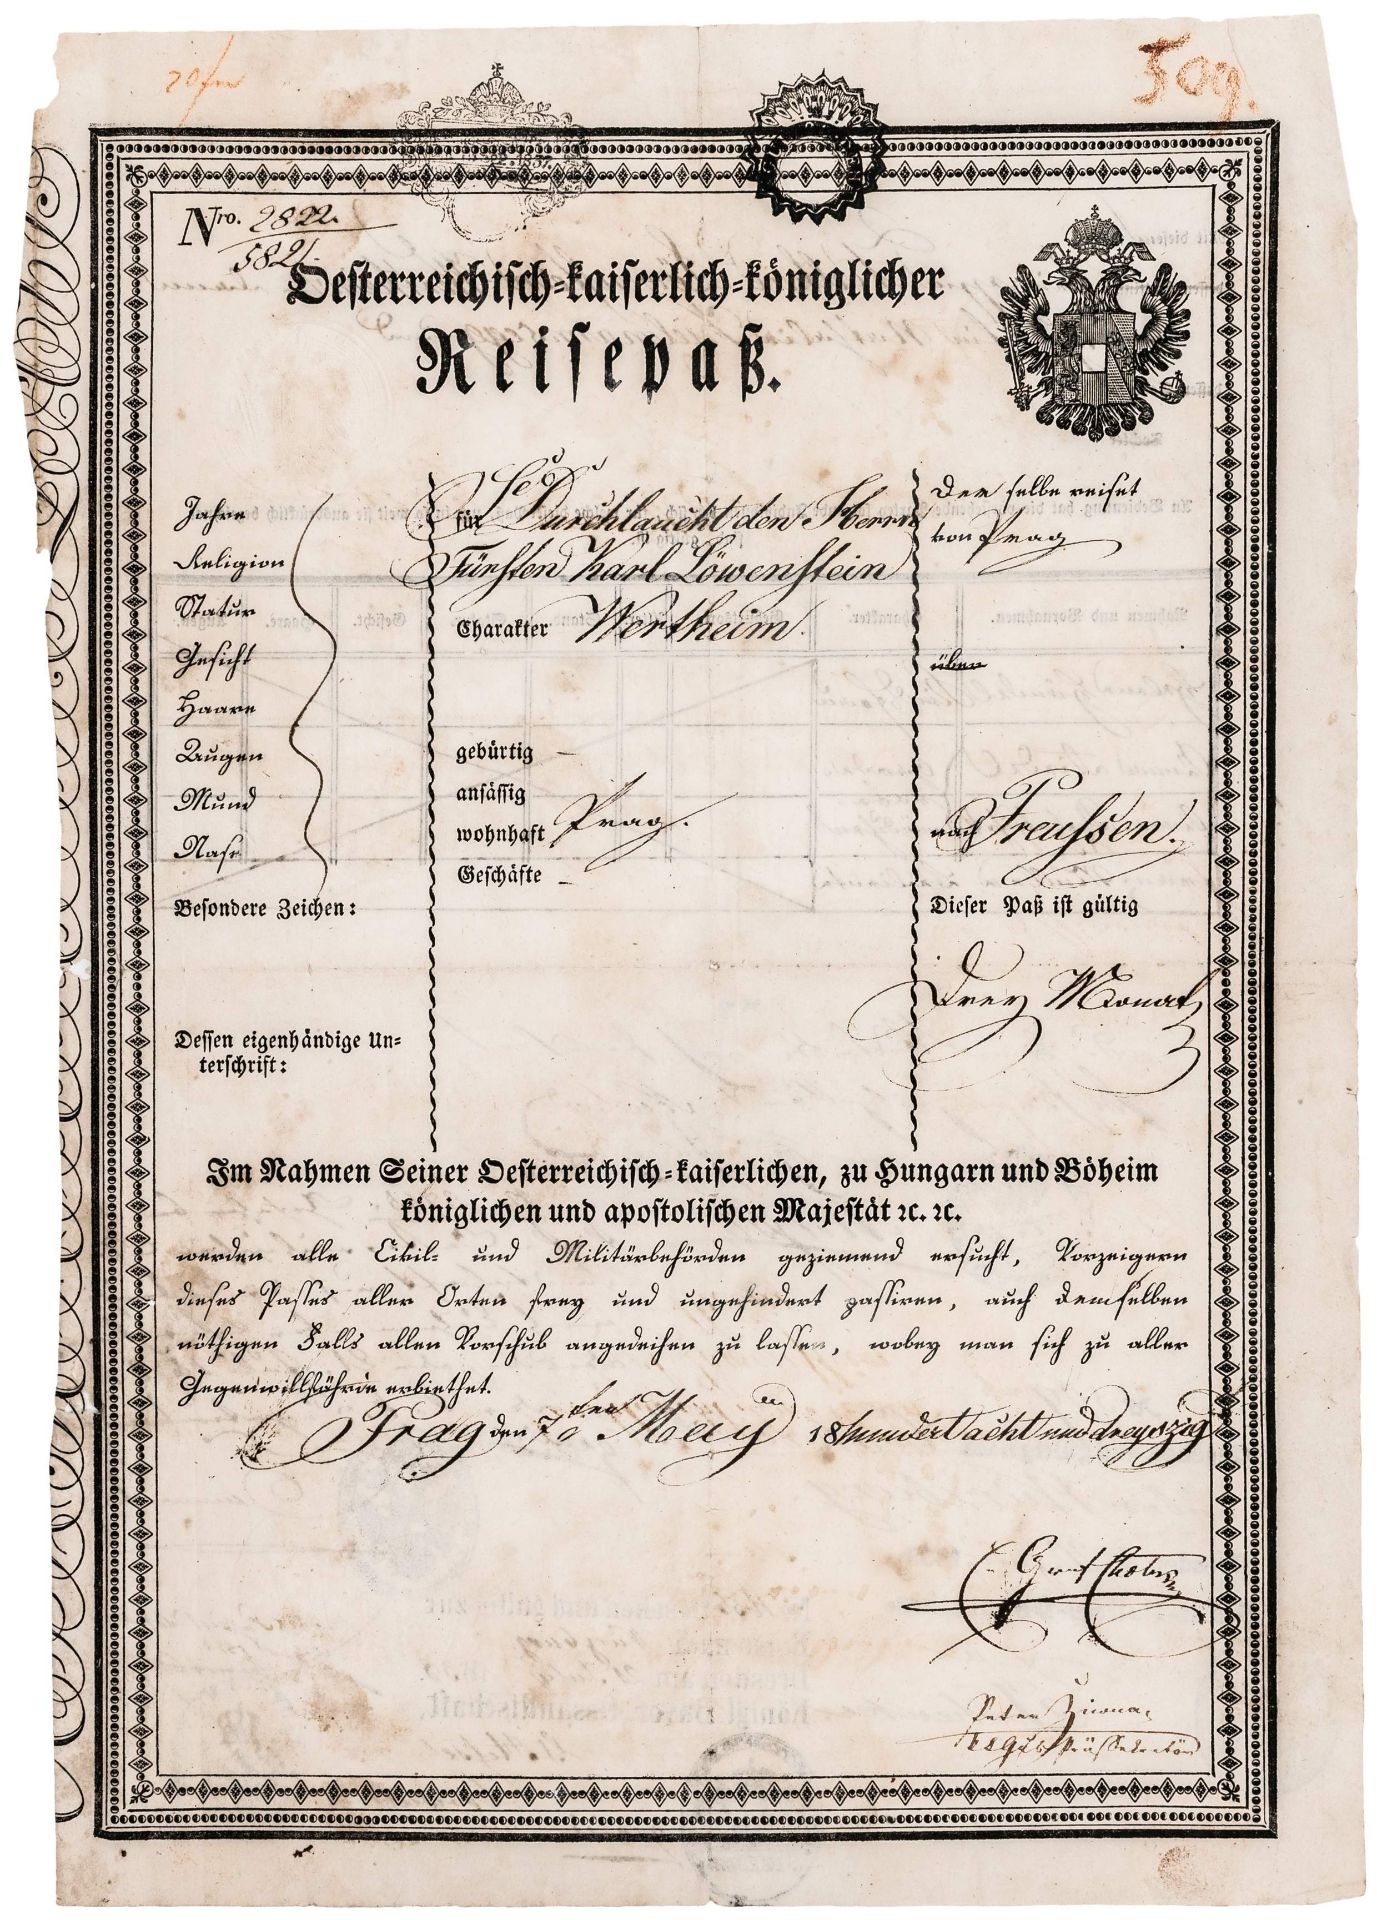 Nro. 2822.
5821.
Oesterreichisch-kaiserlich-königlicher
Reisepaß.
Jahre
Religion
Statur
Gesicht
Haare
Augen
Mund
Nase
Besondere Zeichen:
Dessen eigenhändige Un-
terschrift:
für Se Durchlaucht den Herrn
Fürsten Karl Löwenstein
Charakter Wertheim.
gebürtig –
ansässig
wohnhaft Prag.
Geschäfte –
Der selbe reiset
von Prag
über
nach Preussen.
Dieser Paß ist gültig
Drey Monat
Im Nahmen Seiner Oesterreichisch-kaiserlichen, zu Hungarn und Böheim
königlichen und apostolischen Majestät ꝛc. ꝛc.
werden alle Civil- und Militärbehörden geziemend ersucht, Vorzeigern
dieses Passes aller Orten frey und ungehindert passiren, auch demselben
nöthigen Falls allen Vorschub angedeihen zu lassen, wobey man sich zu aller
Gegenwillfährde erbiethet.
Prag den 7ten May 18hundert acht und dreyszig
Graf
Peter